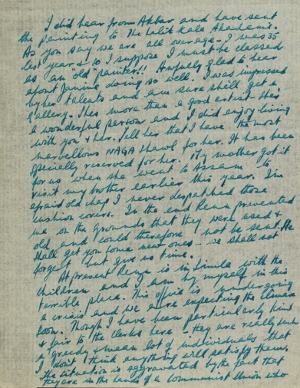 I did hear from Akbar and have sent
the painting to the Lalit Kala Akademi.
As you say we are all average. I was 35
last year & so I suppose I must be classed
as an "old" painter! Awfully glad to hear
about Janine doing so well. I was impressed
by her talents and am sure she'll get a
Gallery. She's more than a good artist, she's
a wonderful person and I did enjoy living
with you & her. Tell her that I have the most
marvellous NAGA shawl for her. It has been
specially reserved for her. My mother got it
for us when she went to Assam to
visit my brother earlier this year. I'm
afraid old chap I never despatched those
cushion covers. In the end Renu prevented
me on the grounds that they were used &
old and could therefore not be sent. He
shall get you some new ones — we shall not
forget but give us time.
At present Renu is in Simla with the
children and I am by myself in this
terrible place. This office is undergoing
a crisis and we are expecting the climax
soon. Though I have been particularly kind
& fair to the clerks here — they are really such
a greedy, mean lot of individuals that
I don't think anything will satisfy them.
The situation is aggravated by the fact that
they are in the hands of a communist Union who